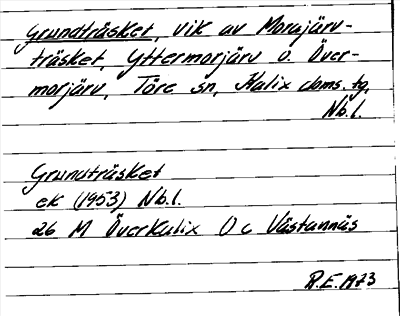 Grundträsket, vik av Morajärv-
träsket, Yttermorjärv o. Över-
morjärv, Töre sn, Kalix doms. tg,
Nb.l.
Grundträsket
ek (1953) Nb.l.
26 M Överkalix O c Västannäs
R.E. 1973